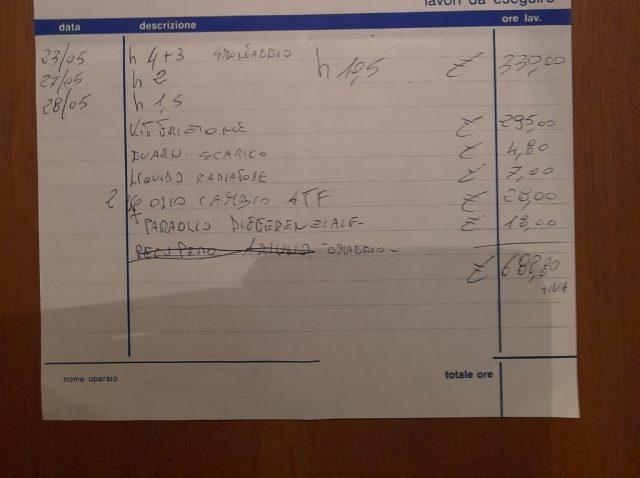 lavori da eseguire
data descrizione ore lav.
23/05 h 4+3 SMONTAGGIO h 10,5 £ 330,00
27/05 h 2
28/05 h 1,5
KIT FRIZIONE £ 295,00
GUARN. SCARICO £ 4,80
LIQUIDO RADIATORE £ 7,00
2 OLIO CAMBIO ATF £ 28,00
PARAOLIO DIFFERENZIALE £ 18,00
RECUPERO OMAGGIO -
£ 682,80
+IVA
nome operaio totale ore